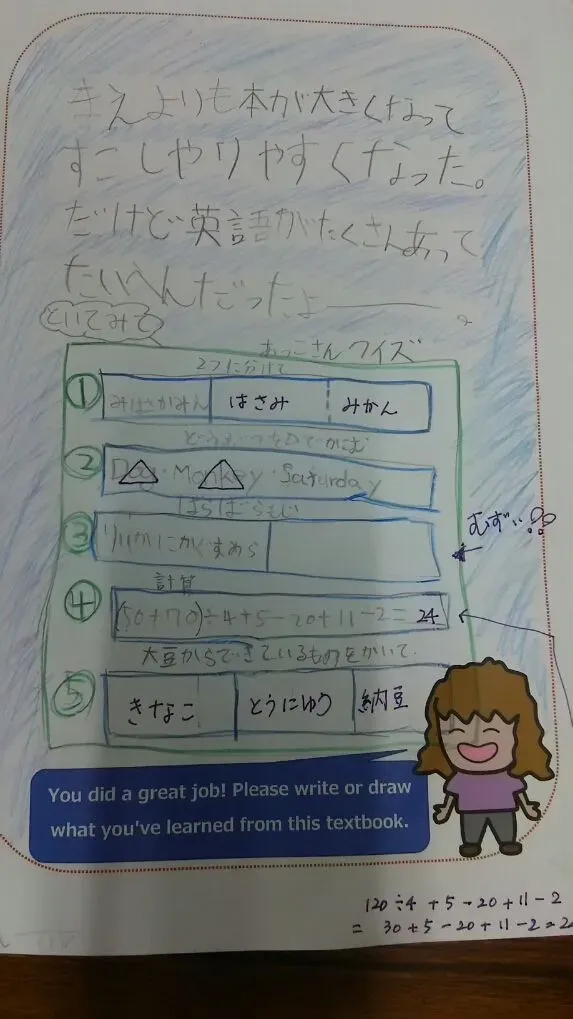 まえよりも本が大きくなって
すこしやりやすくなった。
だけど英語がたくさんあって
たいへんだったよ――。
といてみて
おっこさんクイズ
2つに分けて
① みはさかみん はさみ みかん
どうぶつを□でかこむ
② Dog・Monkey・Saturday
ばらばらもじ
③
むずい
計算
④ (50+70)÷4+5-20+11-2= 24
大豆からできているものをかいて。
⑤ きなこ とうにゅう 納豆
You did a great job! Please write or draw
what you've learned from this textbook.
120÷4+5-20+11-2
= 30+5-20+11-2=2